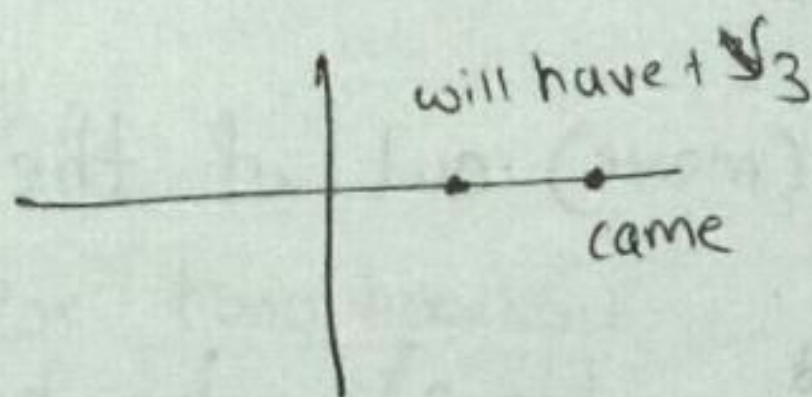 will have + V3
came